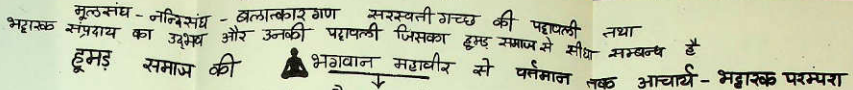 मूलसंघ - नन्दिसंघ - बलात्कारगण सरस्वती गच्छ की पट्टावली तथा
भट्टारक संप्रदाय का उद्भव और उनकी पट्टावली जिसका हूमड़ समाज से सीधा सम्बन्ध है
हूमड़ समाज की भगवान महावीर से वर्तमान तक आचार्य - भट्टारक परम्परा